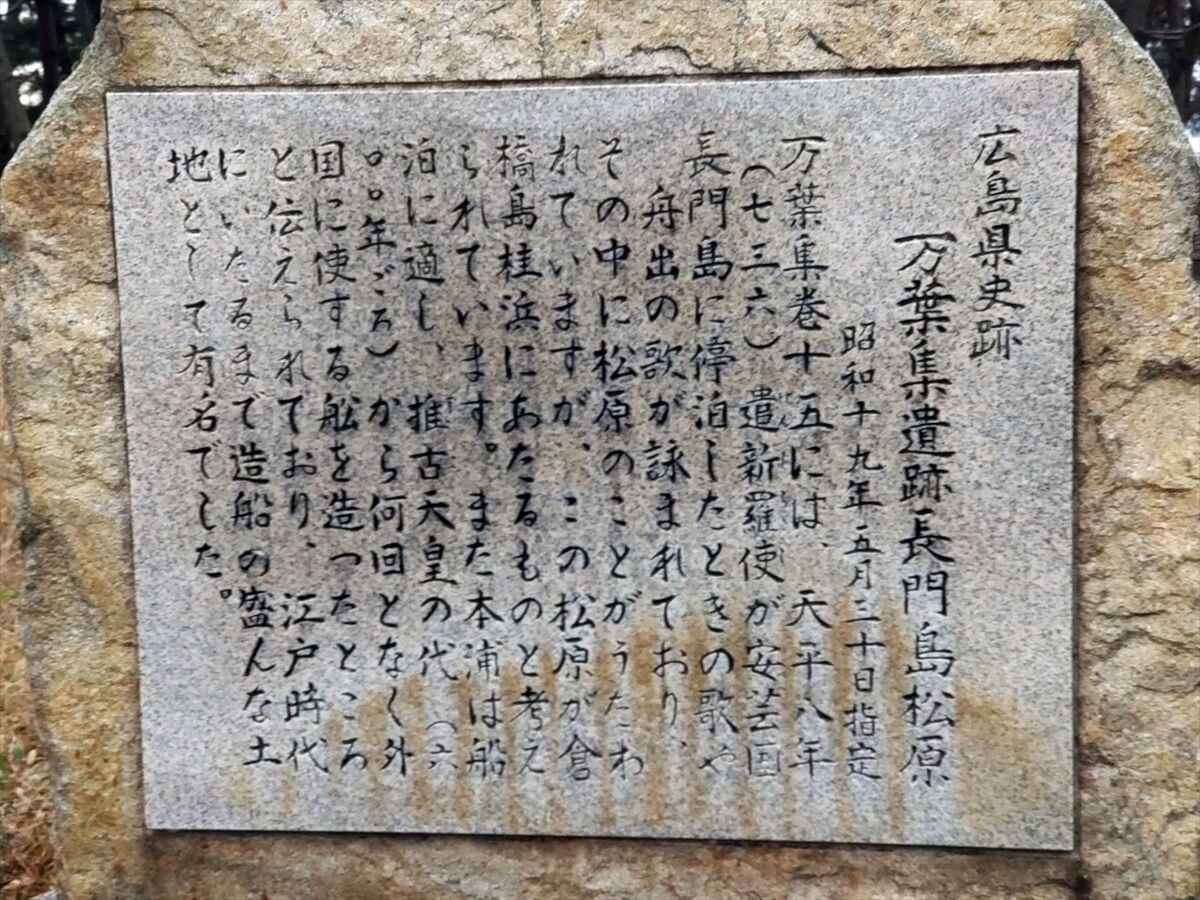 広島県史跡
万葉集遺跡長門島松原
昭和十九年五月三十日指定
万葉集巻十五には、天平八年
（七三六）遣新羅使が安芸国
長門島に停泊したときの歌や
舟出の歌が詠まれており、
その中に松原のことがうたわ
れていますが、この松原が倉
橋島桂浜にあたるものと考え
られています。また本浦は船
泊に適し、推古天皇の代（六
〇〇年ごろ）から何回となく外
国に使する船を造ったところ
と伝えられており、江戸時代
にいたるまで造船の盛んな土
地として有名でした。